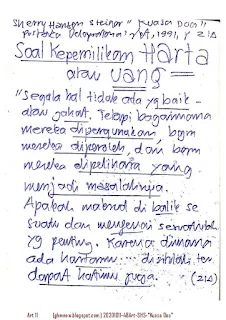 Sherry Hanson Steiner "Kuasa Doa"
Pustaka 1991, 214
Soal Kepemilikan Harta
atau uang =
"Segala hal tidak ada yg baik -
atau jahat. Tetapi bagaimana
mereka dipergunakan, bgm
mereka diperoleh, dan bgm
mereka dipelihara yang
menjadi masalahnya.
Apakah maksud di balik se
suatu dan mengenai
yg penting. Karena dimana
ada hartamu... disitulah ter
dapat hatimu juga. (214)
Art 11 (ghmnew.blogspot.com) 20201013-48Art-SHS-"Kuasa Doa"